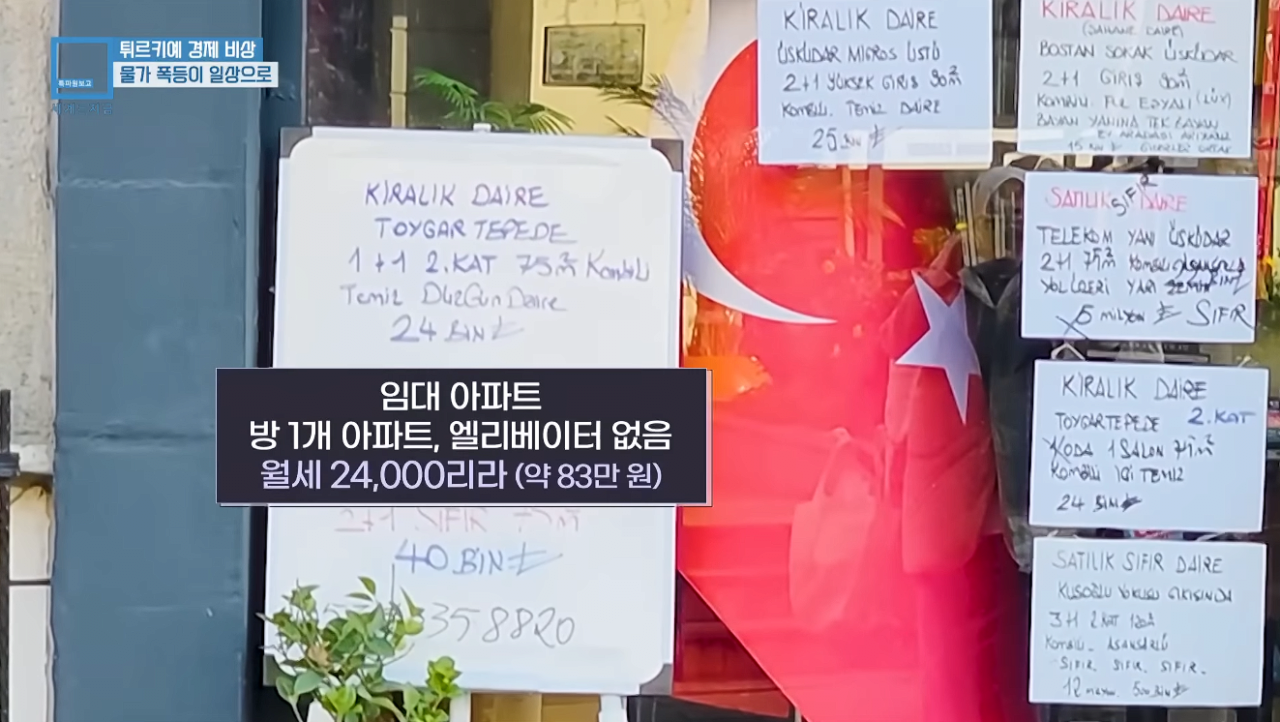 튀르키예 경제 비상
물가 폭등이 일상으로
특파원보고
세계는 지금
KİRALIK DAİRE
TOYGARTEPEDE
1+1 2.KAT 75m² Kombili
Temiz Düzgün Daire
24 BİN ₺
임대 아파트
방 1개 아파트, 엘리베이터 없음
월세 24,000리라 (약 83만 원)
2+1 SIFIR 75m²
40 BİN ₺
358820
KİRALIK DAİRE
ÜSKÜDAR MİGROS ÜSTÜ
2+1 YÜKSEK GİRİŞ 90m²
KOMBİLİ. TEMİZ DAİRE
25 BİN ₺
KİRALIK DAİRE
(ŞAHANE DAİRE)
BOSTAN SOKAK ÜSKÜDAR
2+1 GİRİŞ 90m²
KOMBİLİ. FUL EŞYALI (LÜX)
BAYAN YANINA TEK BAYAN
EV ARKADAŞI
15 BİN ₺ GİDERLER ORTAK
SATILIK SIFIR DAİRE
TELEKOM YANI ÜSKÜDAR
2+1 75m² KOMBİLİ
5 milyon ₺ SIFIR
KİRALIK DAİRE
TOYGARTEPEDE 2.KAT
1 SALON 75m²
KOMBİLİ İÇİ TEMİZ
24 BİN ₺
SATILIK SIFIR DAİRE
KUŞOĞLU YOKUŞU ÇIKIŞINDA
3+1 2 KAT
KOMBİLİ. ASANSÖRLÜ
SIFIR SIFIR SIFIR.
12 milyon 500 BİN ₺